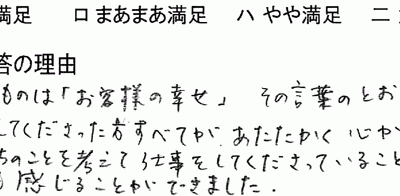 満足 ロ まあまあ満足 ハ やや満足 ニ
答の理由
ものは「お客様の幸せ」 その言葉のとお
してくださった方すべてが、あたたかく 心か
ちのことを考えて 仕事をしてくださっていること
も 感じることができました.